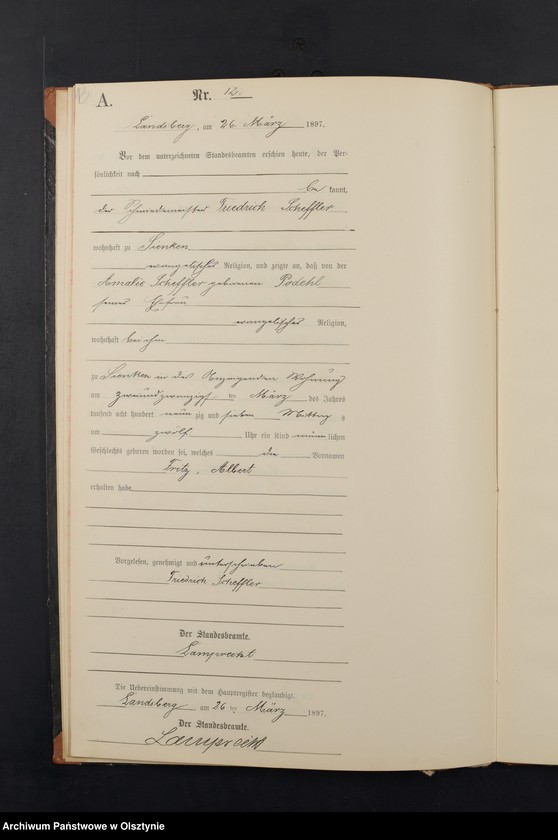 A.
Nr. 12.
Landsberg, am 26 März 1897.
Vor dem unterzeichneten Standesbeamten erschien heute, der Per-
sönlichkeit nach
be kannt,
der Schmiedemeister Friedrich Scheffler
wohnhaft zu Sienken
evangelischer Religion, und zeigte an, daß von der
Amalie Scheffler geborenen Podehl
seiner Ehefrau
evangelischer Religion,
wohnhaft bei ihm
zu Sienken in der Wohnung
am zweiundzwanzigsten März des Jahres
tausend acht hundert neun zig und sieben Mittags
um zwölf Uhr ein Kind männlichen
Geschlechts geboren worden sei, welches die Vornamen
Fritz, Albert
erhalten habe
Vorgelesen, genehmigt und unterschrieben
Friedrich Scheffler
Der Standesbeamte.
Lamprecht
Die Uebereinstimmung mit dem Hauptregister beglaubigt.
Landsberg am 26 ten März 1897.
Der Standesbeamte.
Lamprecht
Archiwum Państwowe w Olsztynie